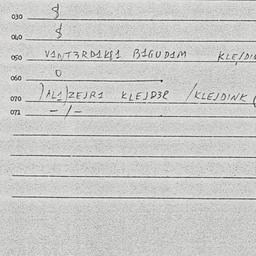 030 §
040 §
050 V1NT3RD1K§1 B1GUD1M KLEJDIN
060 0
070 )AL1)ZEJR1 KLEJD3R /KLEJDINK (
071 -/-